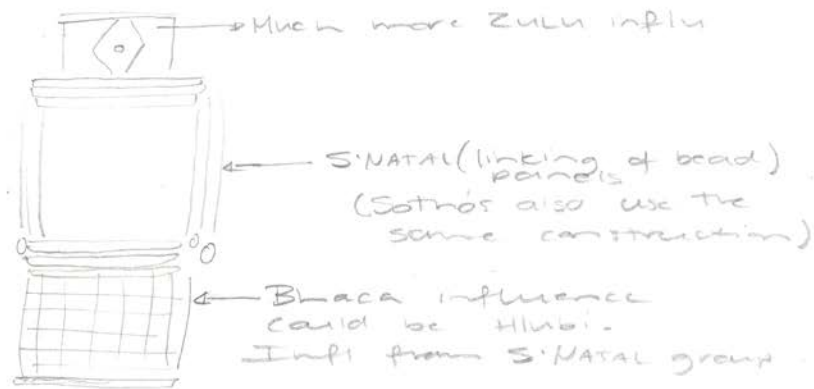 Much more ZULU influ
S.NATAL (linking of bead)
panels
(Sotho's also use the
same construction)
Bhaca influence
could be Hlubi.
Infl from S.NATAL group